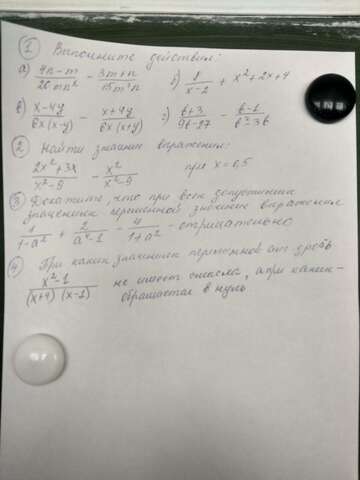 ① Выполните действия:
а) 4n-m/20mn² - 3m+n/15m²n б) 8/x-2 + x²+2x+4
в) x-4y/6x(x-y) - x+4y/6x(x+y) г) b+3/9b-27 - b-1/b²-3b
② Найти значение выражения:
2x²+3x/x²-9 - x²/x²-9 при x=0,5
③ Докажите, что при всех допустимых
значениях переменной значение выражения
1/1-a² + 2/a⁴-1 - 4/1+a² - отрицательно
④ При каких значениях переменной дробь
x²-1/(x+4)(x-1) не имеет смысла, а при каких -
обращается в нуль